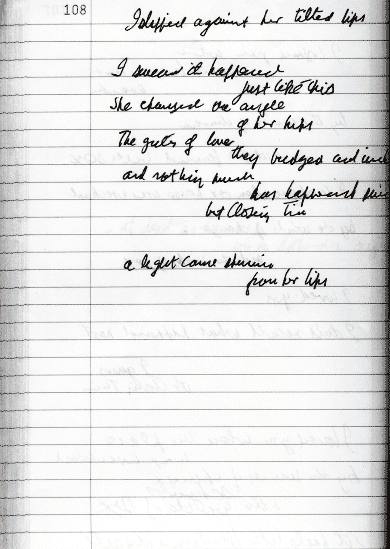 108
I slipped against her tilted lips
I swear it happened
just like this
She changed the angle
of her hips
The gates of love
they budged and inch
and nothing much
has happened since
but Closing Time
a light came shining
from her lips